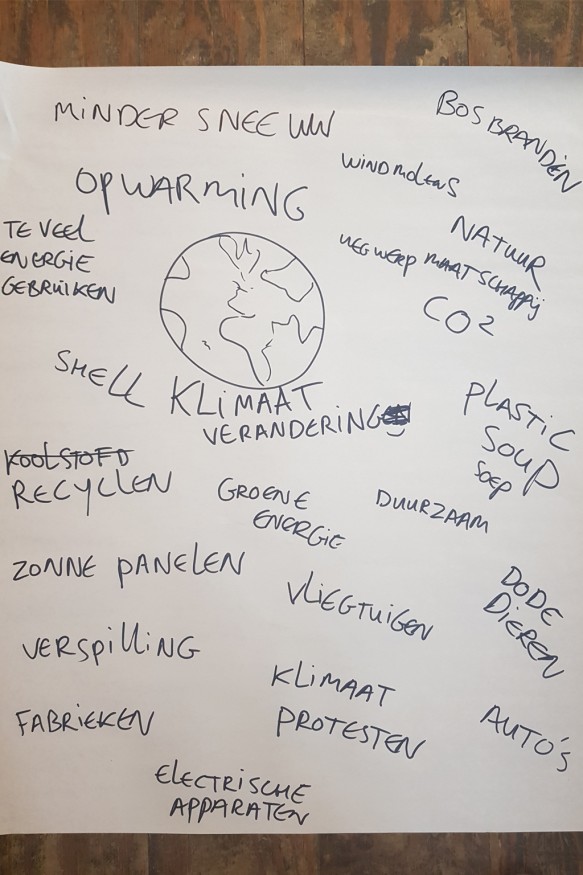 MINDER SNEEUW
BOSBRANDEN
WINDMOLENS
OPWARMING
NATUUR
TE VEEL
ENERGIE
GEBRUIKEN
WEGWERP MAATSCHAPPIJ
CO2
SHELL
KLIMAAT
VERANDERING
PLASTIC
SOUP
SOEP
KOOLSTOFD
RECYCLEN
GROENE
ENERGIE
DUURZAAM
ZONNE PANELEN
VLIEGTUIGEN
DODE
DIEREN
VERSPILLING
KLIMAAT
PROTESTEN
FABRIEKEN
AUTO'S
ELECTRISCHE
APPARATEN